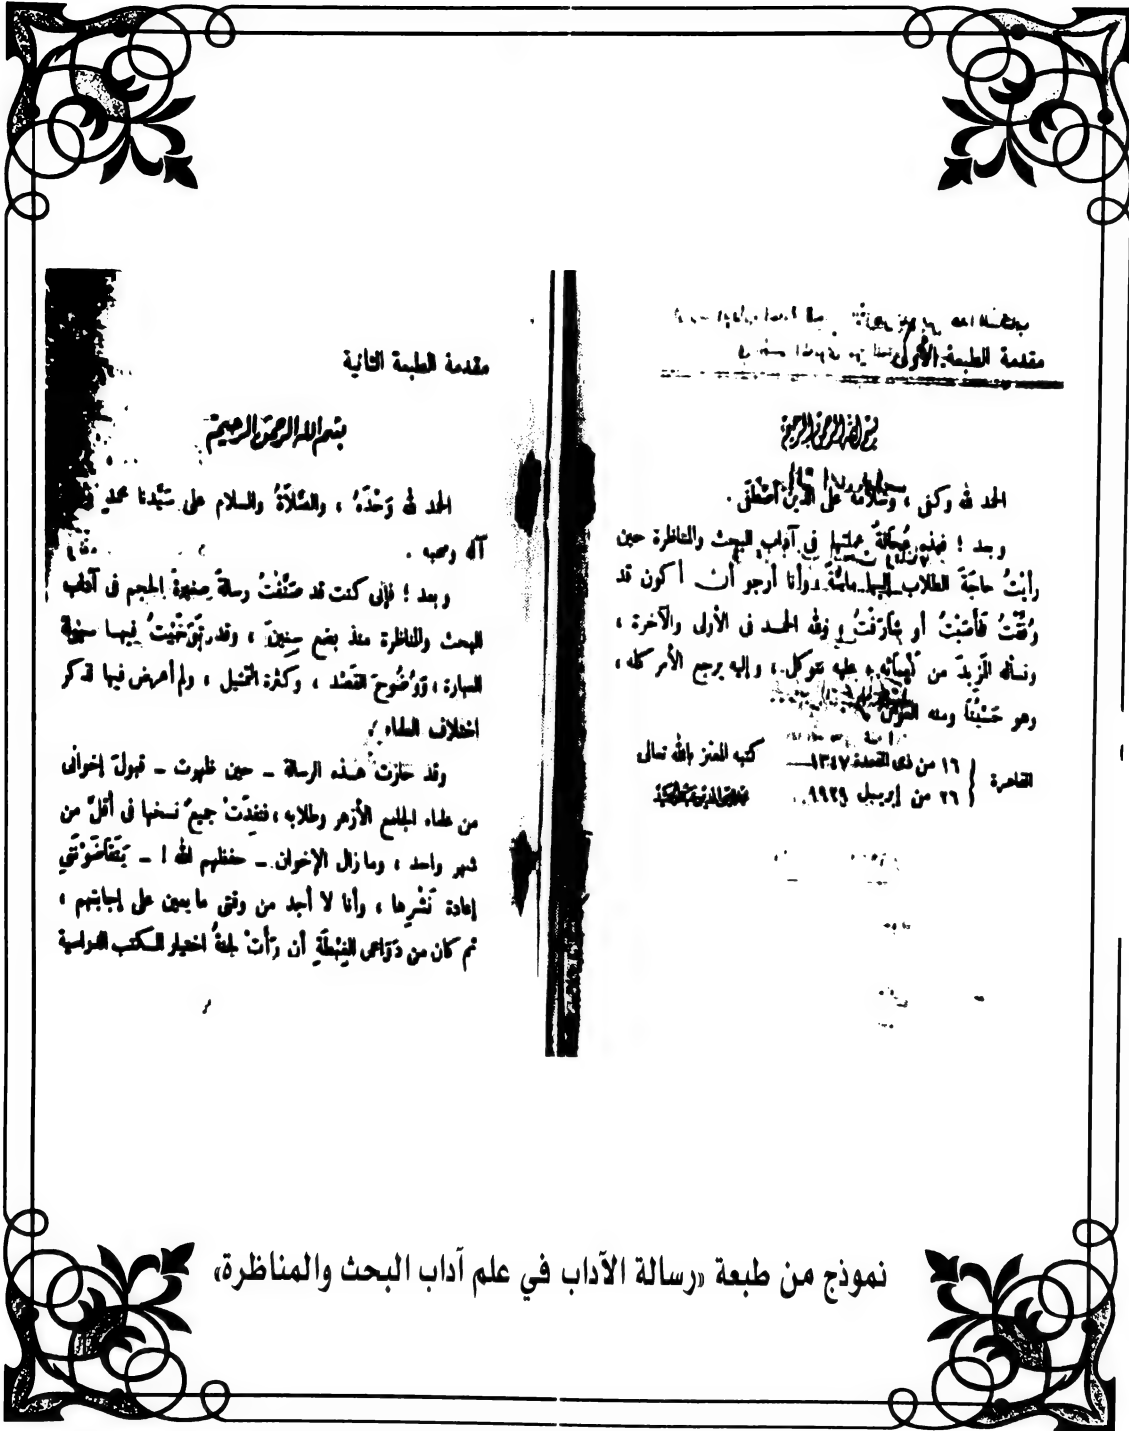 مقدمة الطبعة الأولى
بسم الله الرحمن الرحيم
الحمد لله وكفى ، وسلامه على الذين اصْطَفَى .
وبعد ! فهذه عُجَالَةٌ عملتها في آداب البحث والمناظرة حين
رأيْتُ حاجَةَ الطلاب إليها ماسَّةً وأنا أرجو أن أكون قد
وُفِّقْتُ فَأَصَبْتُ أو قارَفْتُ ولله الحمد فى الأولى والآخرة ،
ونسأله المَزِيدَ من عليه نتوكل ، وإليه يرجع الأمر كله ،
وهو حَسْبُنَا ومنه العَوْنُ
القاهرة
١٦ من ذى القعدة ١٣٤٧
٢٦ من إبريل ١٩٢٩
كتبه المعتز بالله تعالى
محمد محيى الدين عبد الحميد
مقدمة الطبعة الثانية
بسم الله الرحمن الرحيم
الحمد لله وَحْدَهُ ، والصَّلَاةُ والسلام على سَيِّدنا محمدٍ
آله وصحبه .
وبعد ؛ فإنى كنت قد صَنَّفْتُ رسالةً صغيرةَ الحجم فى آداب
البحث والمناظرة منذ بضع سِنِينَ ، وقد تَوَخَّيْتُ فيها سهولة
العبارة ، وَوُضُوحَ القَصْد ، وكثرة التمثيل ، ولم أعرض فيها لذكر
اختلاف العلماء .
وقد حازت هذه الرسالة – حين ظهرت – قبولَ إخوانى
من علماء الجامع الأزهر وطلابه ، فنفِدَتْ جميعُ نسخها فى أقلَّ من
شهر واحد ، وما زال الإخوان – حفظهم الله ! – يَتَقَاضَوْنَنِي
إعادة نَشْرِها ، وأنا لا أجد من وقتى ما يعين على إجابتهم ،
ثم كان من دَوَاعى الغِبْطَةِ أن رَأَتْ لجنةُ اختيار الكتب الدراسية
نموذج من طبعة «رسالة الآداب في علم آداب البحث والمناظرة»